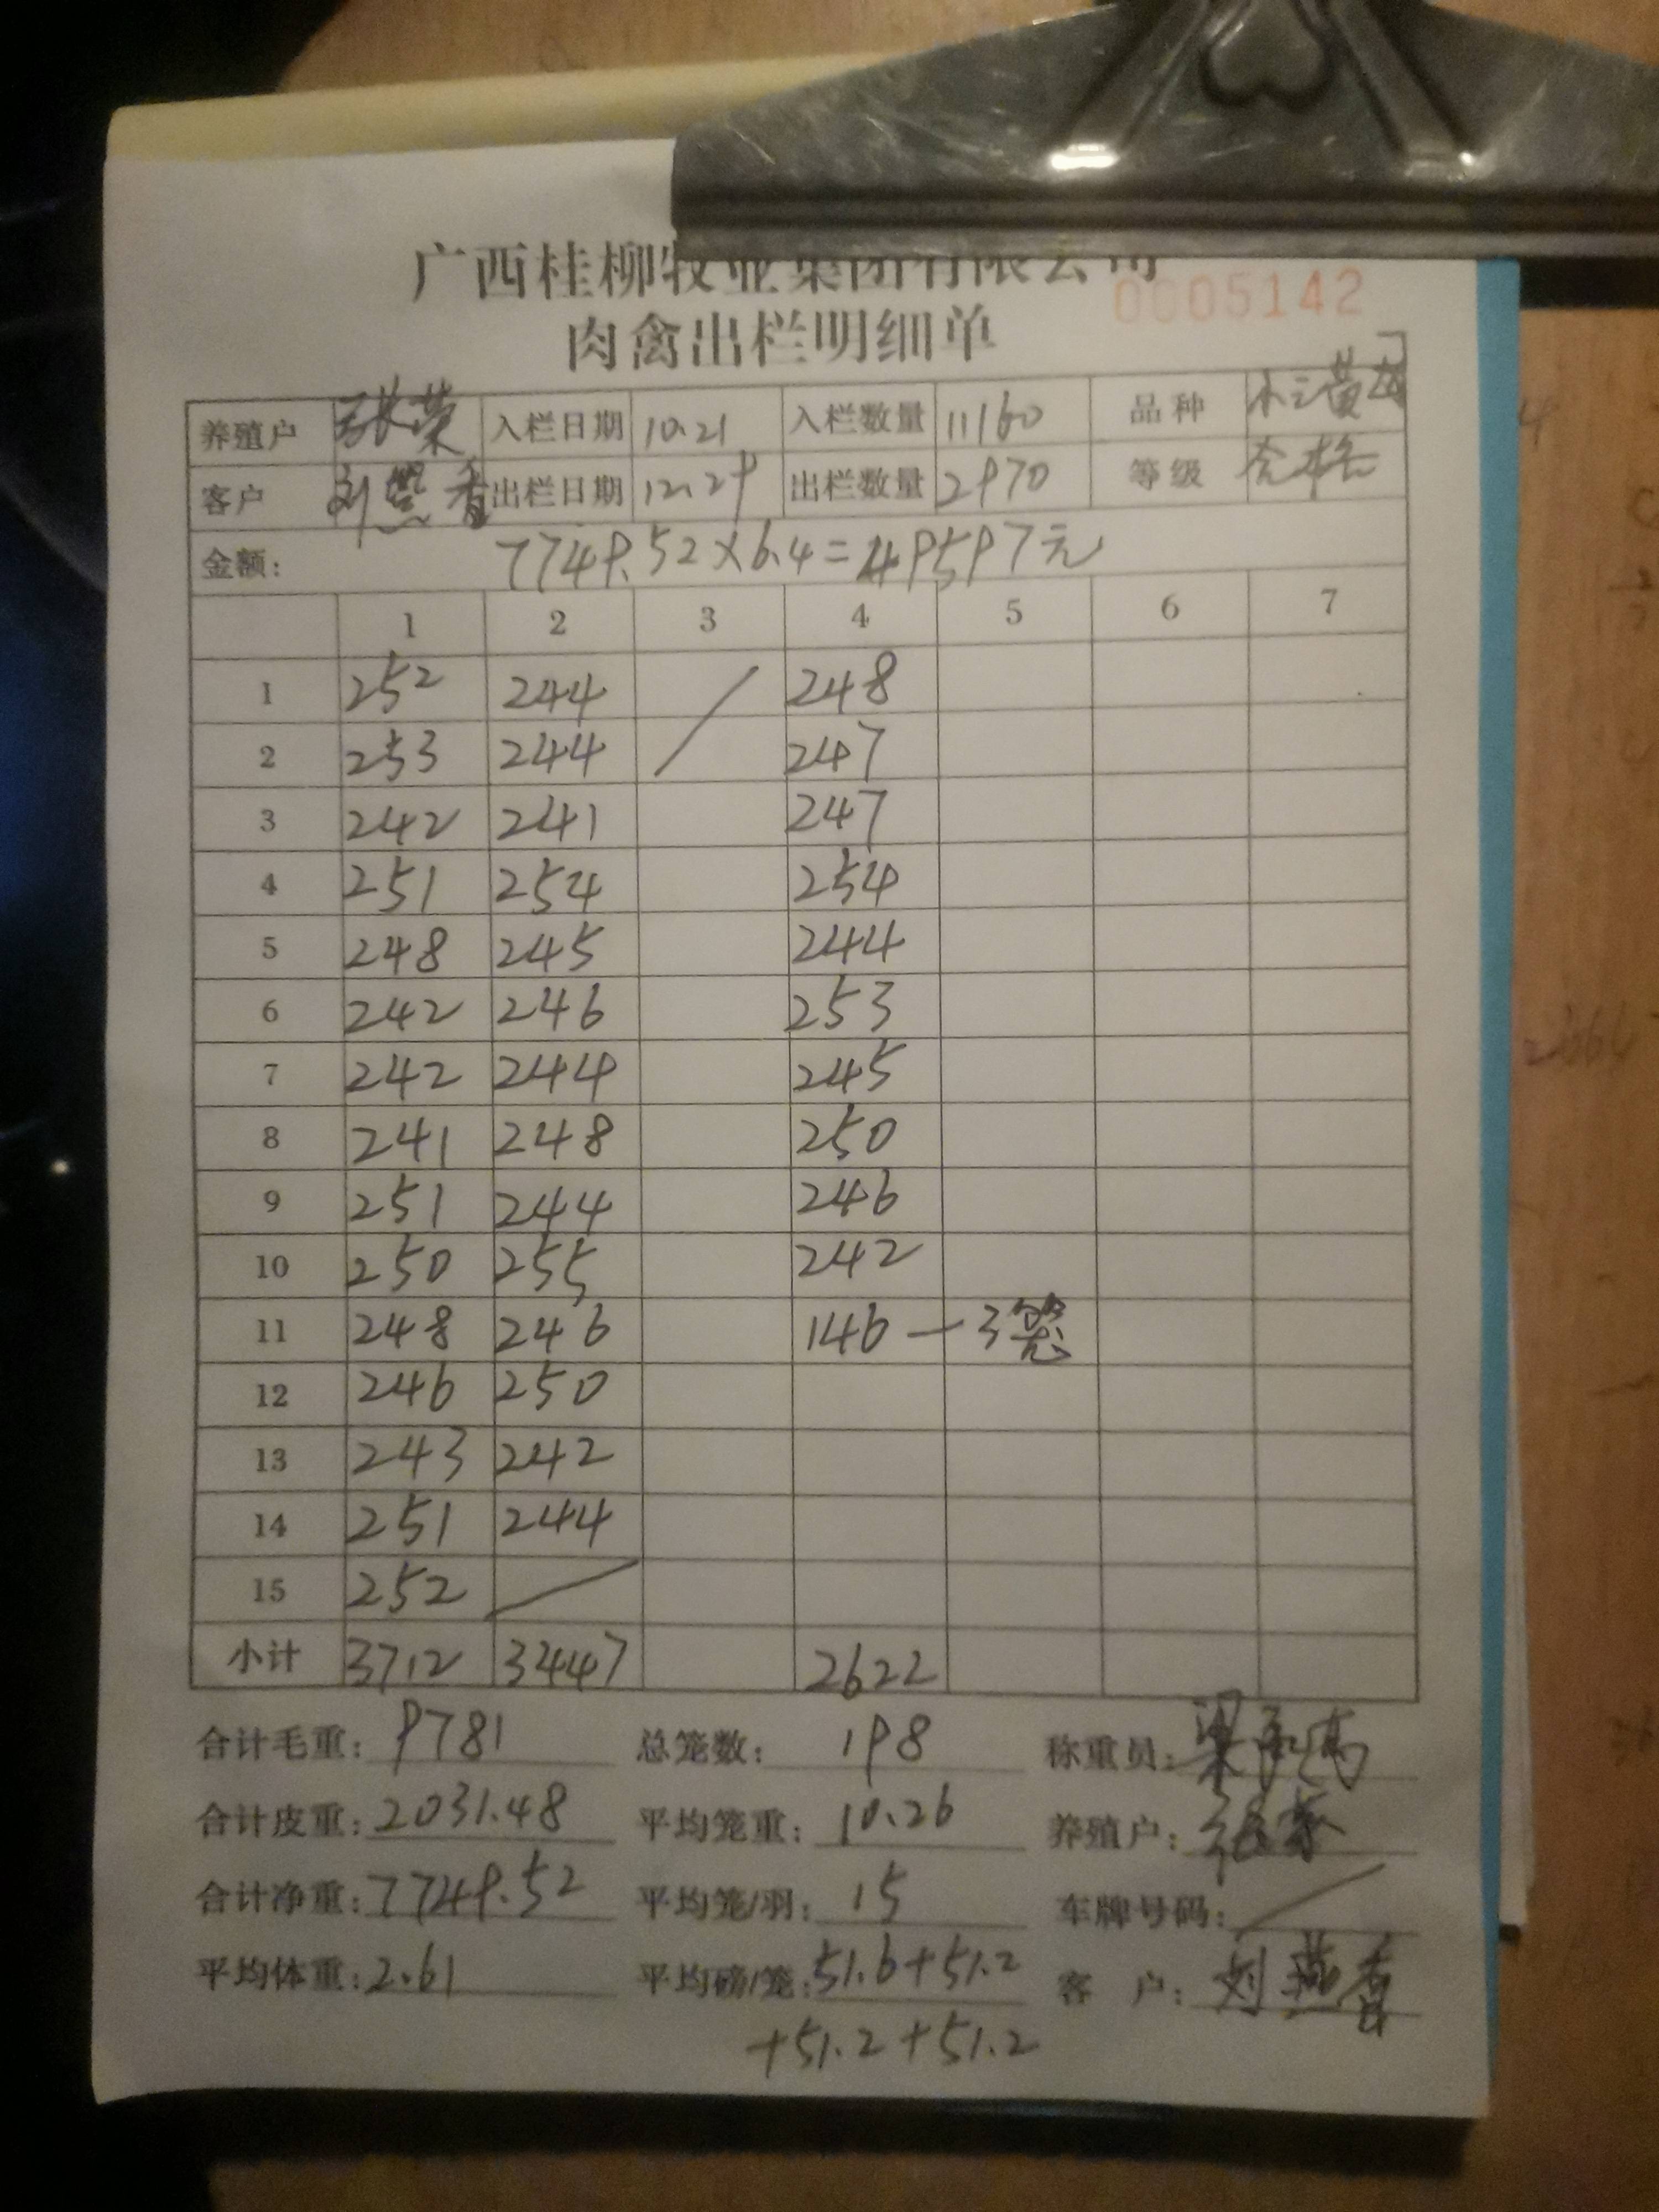 广西桂柳牧业集团有限公司
0005142
肉禽出栏明细单
养殖户 张荣 入栏日期 10.21 入栏数量 11160 品种 小三黄母
客户 刘燕香 出栏日期 12.29 出栏数量 2970 等级 合格
金额: 7749.52×6.4=49597元
1 2 3 4 5 6 7
1 252 244 / 248
2 253 244 247
3 242 241 247
4 251 254 254
5 248 245 244
6 242 246 253
7 242 244 245
8 241 248 250
9 251 244 246
10 250 255 242
11 248 246 146 — 3笼
12 246 250
13 243 242
14 251 244
15 252 /
小计 3712 3447 2622
合计毛重: 9781 总笼数: 198 称重员:
合计皮重: 2031.48 平均笼重: 10.26 养殖户: 张荣
合计净重: 7749.52 平均笼/羽: 15 车牌号码: /
平均体重: 2.61 平均磅/笼: 51.6+51.2 客 户: 刘燕香
+51.2+51.2